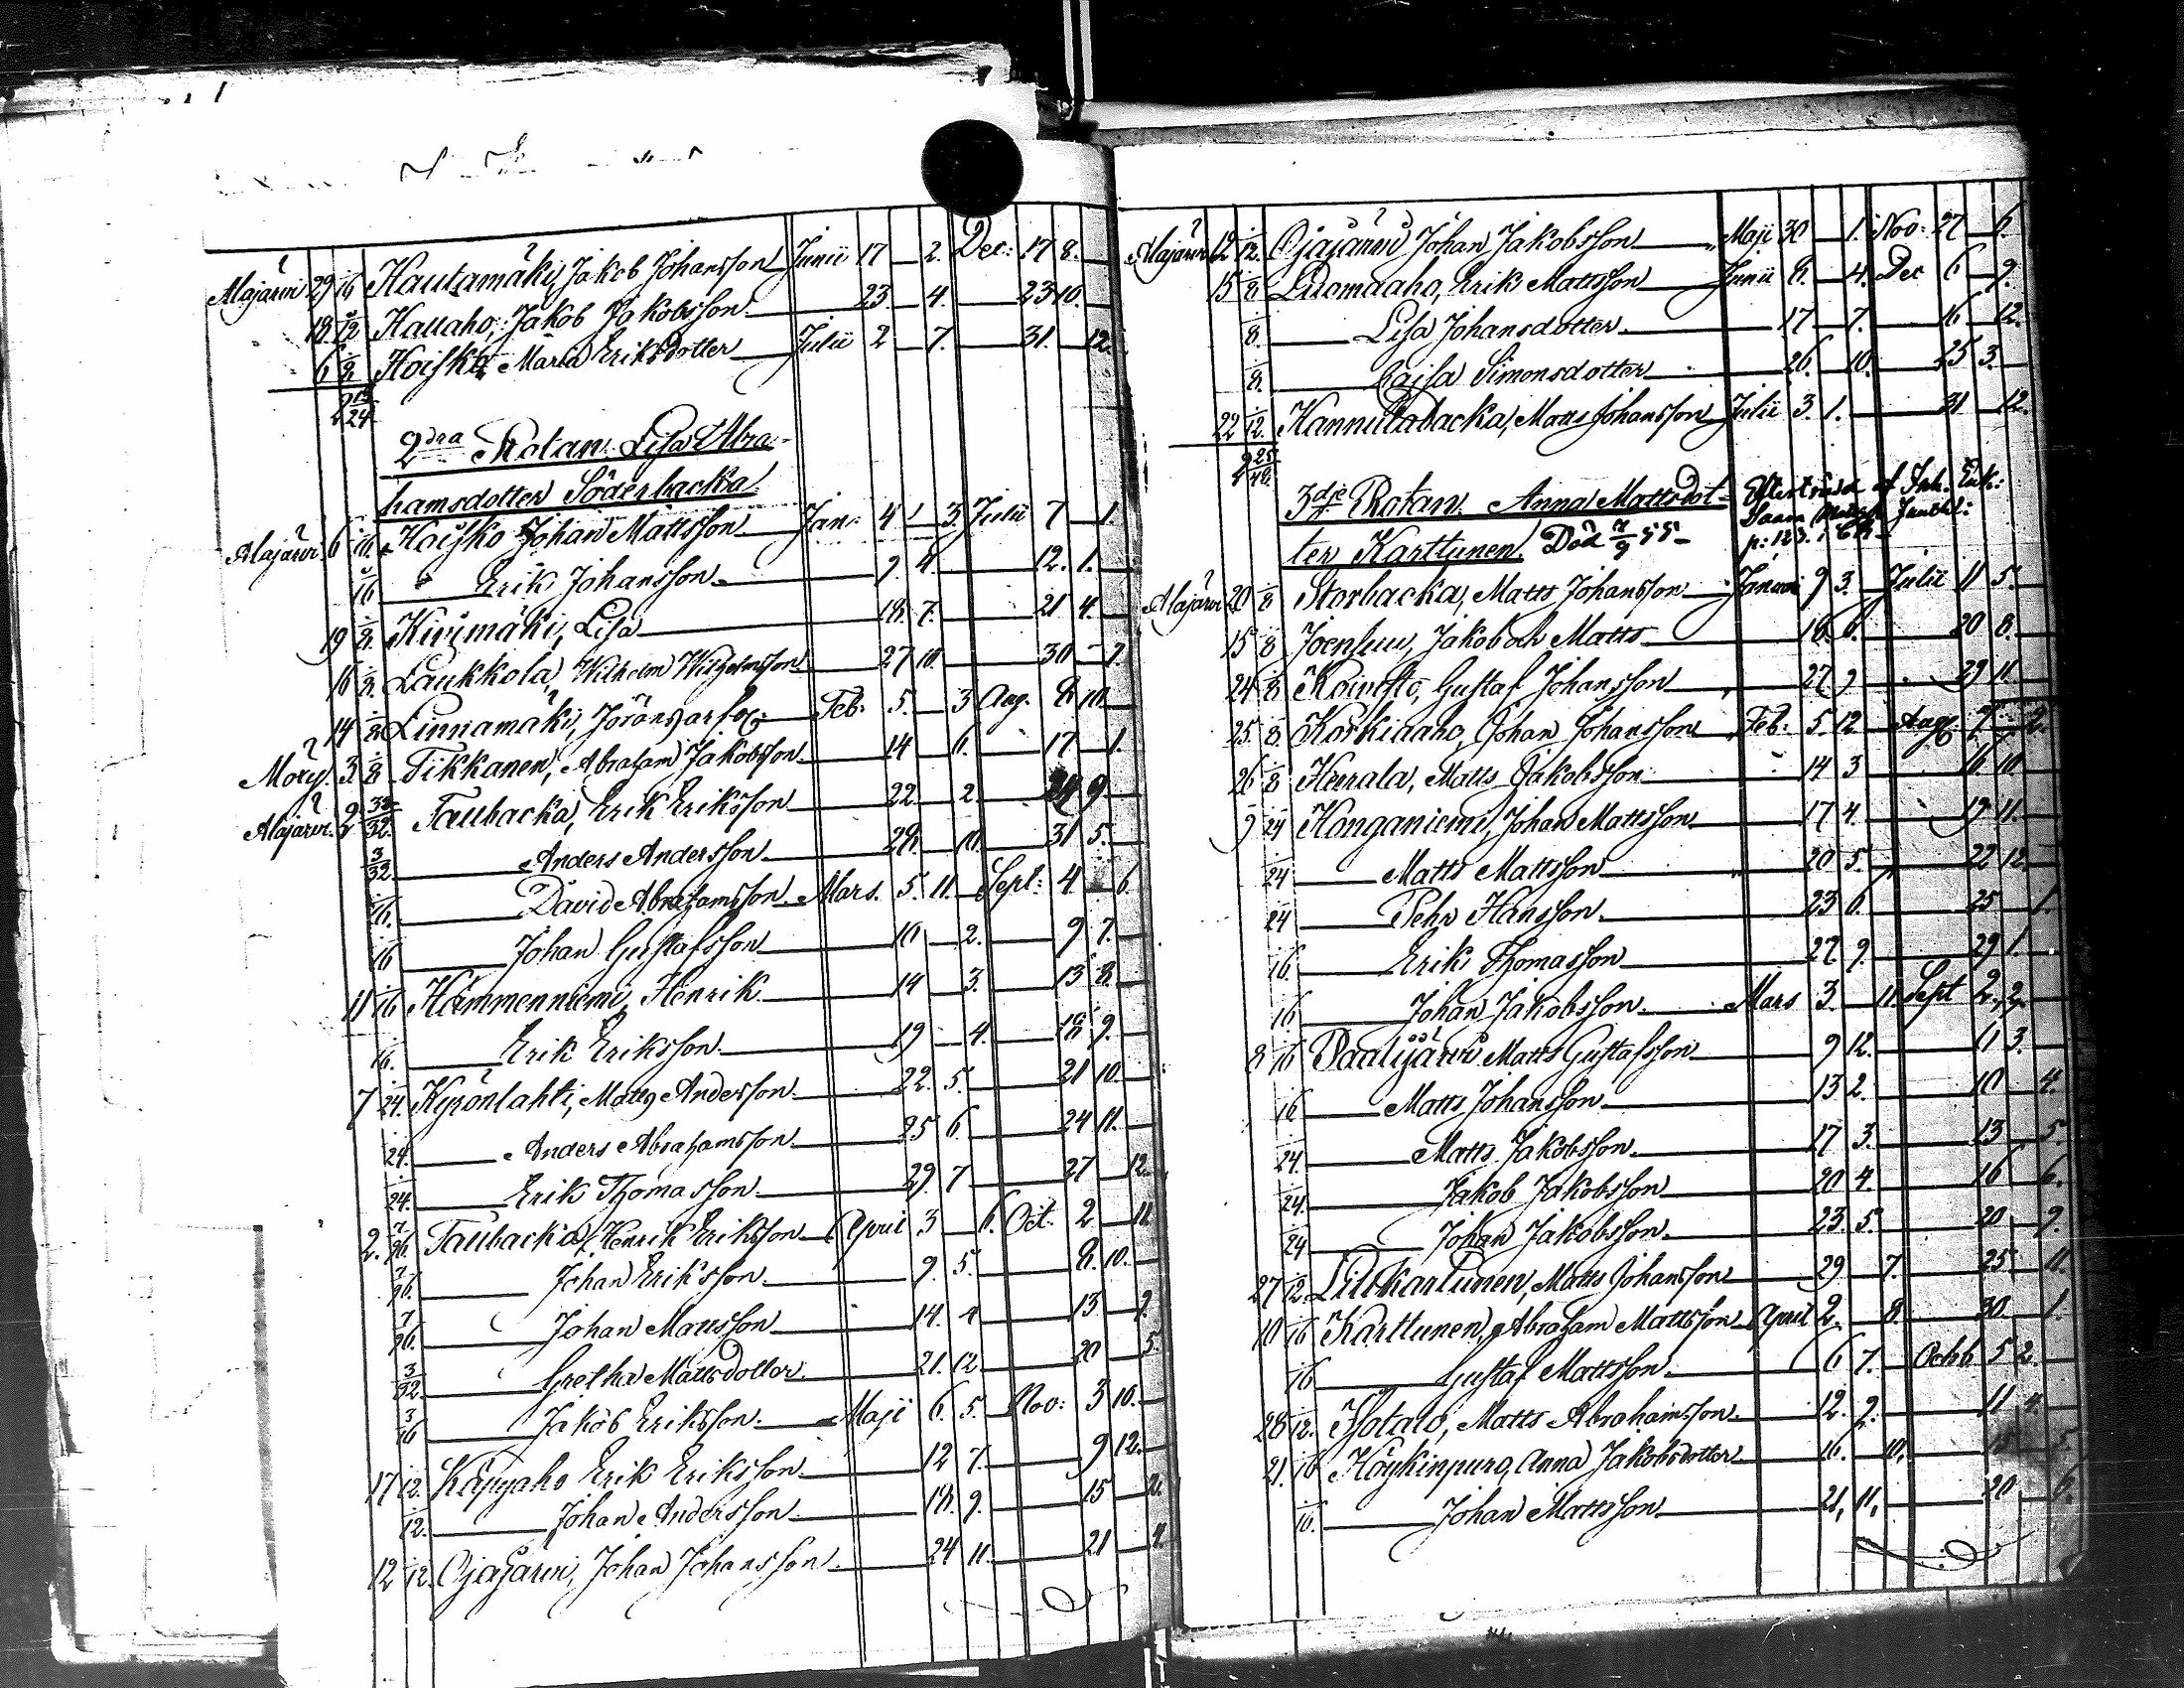 Alajärvi 29 1/16 Hautamäki, Jakob Johansson Junii 17 2. Dec: 17 8.
18. 1/12 Kauaho, Jakob Jakobsson 23 4. 23 10.
6 1/8 Hoisko Maria Eriksdotter Julii 2 7. 31. 12.
2dra Rotan. Lisa Abra-
hamsdotter Söderbacka
Alajärvi 6 1/16. Hoisko Johan Mattsson Jan: 4 3. Julii 7 1.
1/16 Erik Johansson 9. 4. 12. 1.
19 1/8. Kivimäki, Lisa 18. 7. 21 4.
16 1/8. Laukkola, Wilhelm Wilhelmsson 27 10. 30 7.
14 1/8 Linnamäki, Jöransarfv: Feb: 5. 3 Aug. 8 10.
3 1/8 Tikkanen, Abraham Jakobsson 14 6. 17 1.
Alajärvi. 2 3/32. Taubacka, Erik Eriksson 22 2 9
3/32. Anders Andersson 28. 11. 31 5.
1/16. David Abrahamsson Mars. 5. 11. Sept: 4 6.
1/16 Johan Gustafsson 10 2. 9 7.
11 1/16 Hämmenniemi, Henrik 14 3. 13 8.
1/16. Erik Eriksson 19 4. 18 9.
7 1/24. Kyrönlahti, Matts Andersson 22. 5. 21 10.
1/24. Anders Abrahamsson 25 6. 24 11.
1/24. Erik Thomasson 29. 7 27 12.
2. 7/96. Taubacka, Henrik Eriksson April 3 6. Oct: 2 11.
7/96. Johan Eriksson 9. 5. 8. 10.
7/96. Johan Mattsson 14. 4 13 9.
3/32. Gretha Mattsdotter 21. 12. 20 5.
3/16 Jakob Eriksson Maji 6. 5. Nov: 3 10.
17 1/12. Käpyaho Erik Eriksson 12 7. 9 12.
1/12. Johan Andersson 18. 9. 15 2.
12 1/12. Ojajärvi, Johan Johansson 24 11. 21 4.
Alajärvi 12 1/12. Ojajärvi Johan Jakobsson Maji 30 1. Nov: 27 6.
15 1/8 Luomaaho, Erik Mattsson Junii 8. 4. Dec 6 9.
1/8. Lisa Johansdotter 17 7. 16 12.
1/8. Cajsa Simonsdotter 26. 10. 25 3.
22 1/12. Kannuttobacka, Matts Johansson Julii 3. 1. 31 12.
2 25/48.
3dje Rotan. Anna Mattsdot-
ter Karttunen. Död 7/9 55
Alajärvi 20 1/8 Storbacka, Matts Johansson Januari 9 3. Julii 11 5.
15 1/8 Joensuu, Jakob och Matts 18. 6. 20 8.
24 1/8 Koivisto, Gustaf Johansson 27 9 29 11.
25. 1/8. Korkiaaho, Johan Johansson Feb: 5. 12 Aug: 7 2.
26 1/8 Herrala, Matts Jakobsson 14 3 16. 10.
9 1/24 Honganiemi, Johan Mattsson 17 4. 19 11.
1/24 Matts Mattsson 20 5. 22 12.
1/24 Pehr Hansson 23 6. 25 1.
1/16 Erik Thomasson 27. 9. 29 1.
1/16 Johan Jakobsson Mars 3. 11. Sept 2. 2.
8 1/16 Paalijärvi Matts Gustafsson 9 12. 11 3.
1/16 Matts Johansson 13 2. 10 4.
1/24. Matts Jakobsson 17 3. 13 5.
1/24. Jakob Jakobsson 20 4. 16 6.
1/24 Johan Jakobsson 23. 5. 20 9.
27 1/12 Lillkartunen, Matts Johansson 29 7. 25 11.
10 1/16 Karttunen, Abraham Mattsson April 2. 8. 30. 1.
1/16 Gustaf Mattsson 6 7. Octob 5 2.
28 1/12. Isotalo, Matts Abrahamsson 12. 9. 11 4.
21. 1/16 Höykinpuro, Anna Jakobsdotter 16. 10. 15 5.
1/16. Johan Mattsson 21, 11, 20 6.